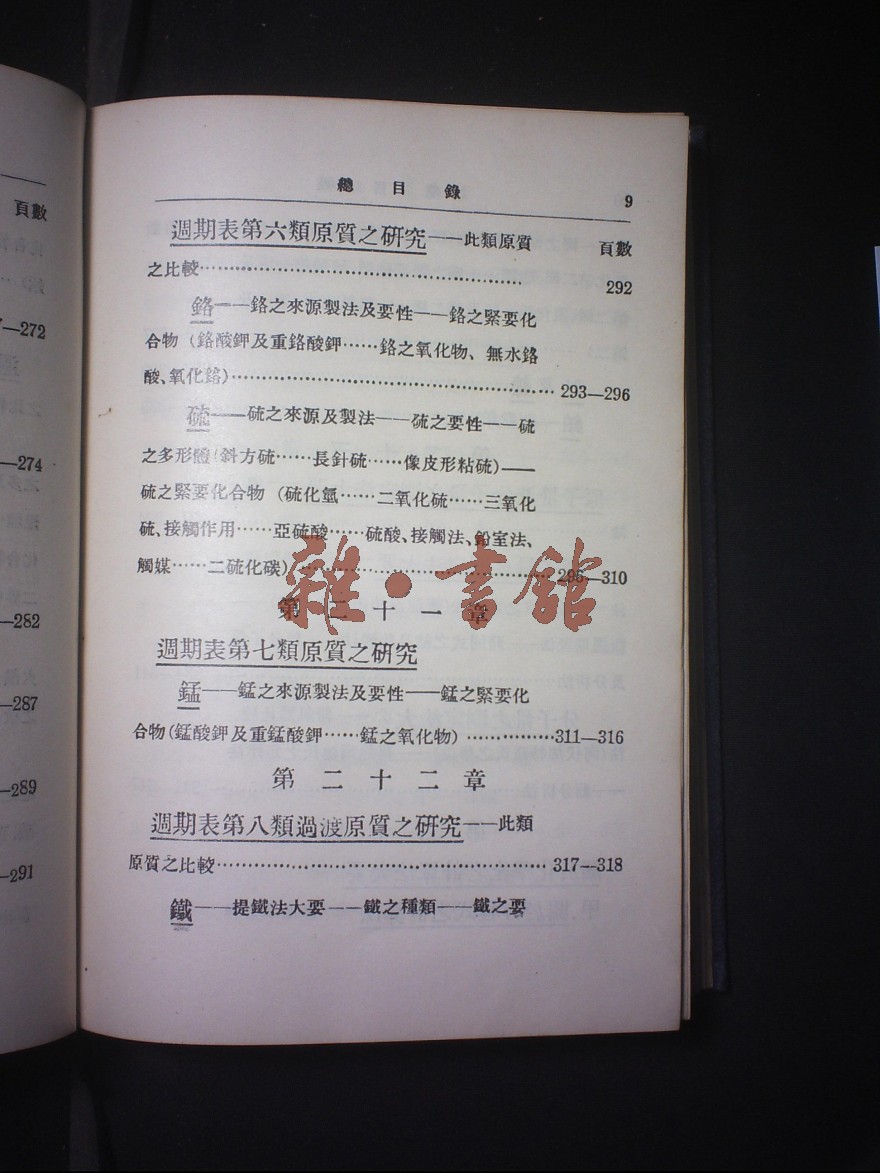 總目錄 9
週期表第六類原質之研究——此類原質 頁數
之比較…… 292
鉻——鉻之來源製法及要性——鉻之緊要化
合物（鉻酸鉀及重鉻酸鉀……鉻之氧化物、無水鉻
酸、氧化鉻）…… 293—296
硫——硫之來源及製法——硫之要性——硫
之多形體（斜方硫……長針硫……像皮形粘硫）——
硫之緊要化合物（硫化氫……二氧化硫……三氧化
硫、接觸作用……亞硫酸……硫酸、接觸法、鉛室法、
觸媒……二硫化碳）…… 296—310
第二十一章
週期表第七類原質之研究
錳——錳之來源製法及要性——錳之緊要化
合物（錳酸鉀及重錳酸鉀……錳之氧化物）……311—316
第二十二章
週期表第八類過渡原質之研究——此類
原質之比較…… 317—318
鐵——提鐵法大要——鐵之種類——鐵之要
雜·書館
頁數
—272
—274
—282
—287
—289
—291